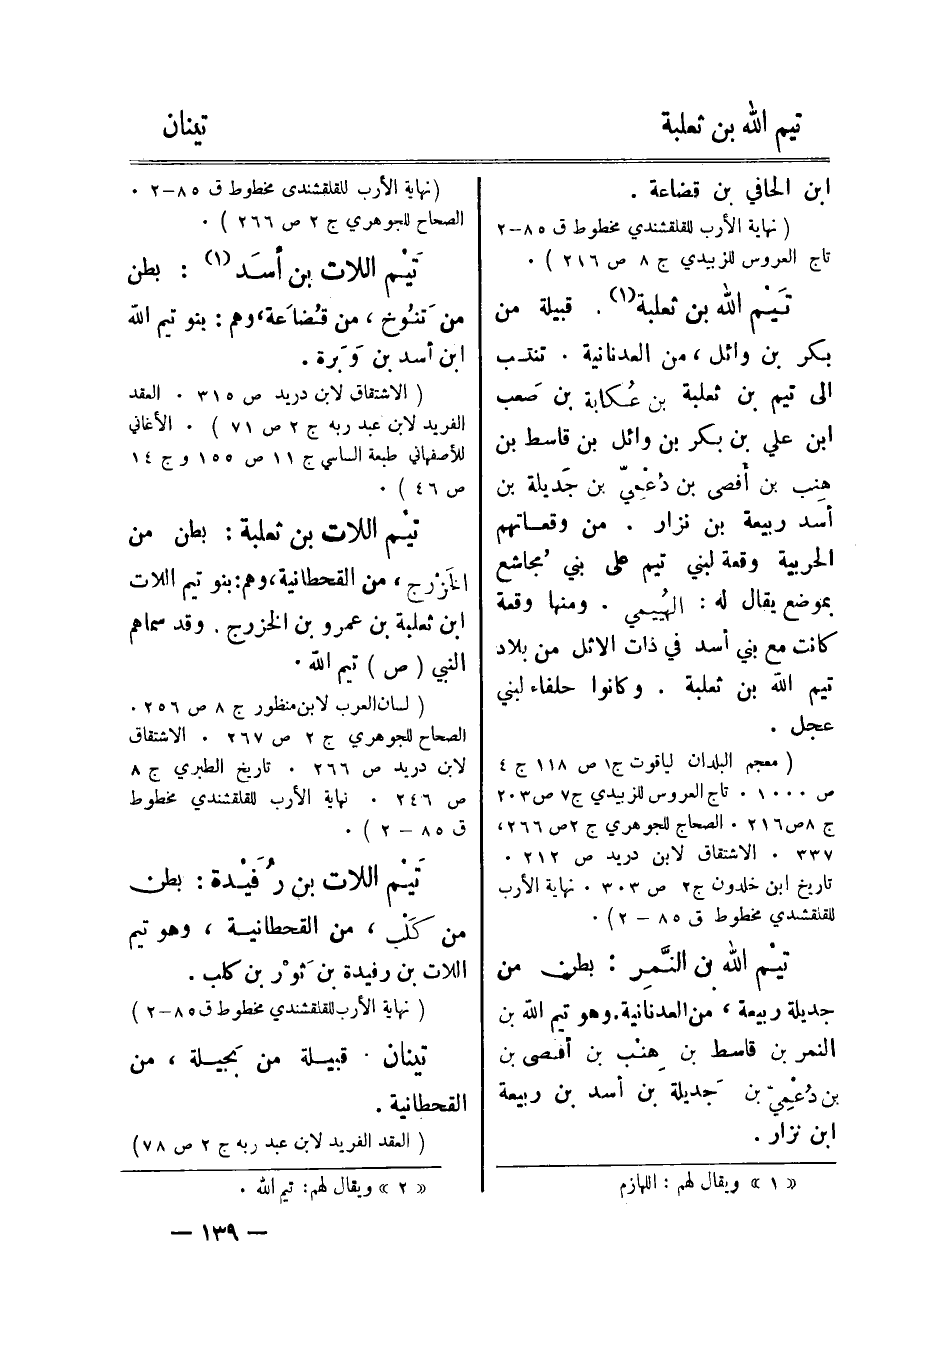 تيم الله بن ثعلبة
تينان
ابن الحافي بن قضاعة .
( نهاية الأرب للقلقشندي مخطوط ق ٨٥–٢
تاج العروس للزبيدي ج ٨ ص ٢١٦ ) .
تَيْم الله بن ثعلبة(١) . قبيلة من
بكر بن وائل ، من العدنانية . تنتسب
الى تيم بن ثعلبة بن عُكابة بن صعب
ابن علي بن بكر بن وائل بن قاسط بن
هِنب بن أفصى بن دُعْمِيّ بن جَديلة بن
أسد ربيعة بن نزار . من وقعاتهم
الحربية وقعة لبني تيم على بني مُجاشع
بموضع يقال له : الهُيَيمي . ومنها وقعة
كانت مع بني أسد في ذات الاثل من بلاد
تيم الله بن ثعلبة . وكانوا حلفاء لبني
عجل .
( معجم البلدان لياقوت ج١ ص ١١٨ ج ٤
ص ١٠٠٠ . تاج العروس للزبيدي ج٧ ص٢٠٣
ج ٨ص٢١٦ . الصحاح للجوهري ج ٢ص ٢٦٦،
٣٣٧ . الاشتقاق لابن دريد ص ٢١٢ .
تاريخ ابن خلدون ج٢ ص ٣٠٣ . نهاية الأرب
للقلقشندي مخطوط ق ٨٥ – ٢) .
تَيْم الله بن النَّمِر : بطن من
جديلة ربيعة ، من العدنانية.وهو تيم الله بن
النمر بن قاسط بن هِنْب بن أفصى بن
بن دُعْمِيّ بن جَديلة بن أسد بن ربيعة
ابن نزار .
« ١ » ويقال لهم : اللهازم
(نهاية الأرب للقلقشندى مخطوط ق ٨٥–٢ .
الصحاح للجوهري ج ٢ ص ٢٦٦ ) .
تَيْم اللات بن أسَد (١) : بطن
من تَنُوخ ، من قُضاعة،وهم : بنو تيم الله
ابن أسد بن وَبَرة .
( الاشتقاق لابن دريد ص ٣١٥ . العقد
الفريد لابن عبد ربه ج ٢ ص ٧١ ) . الأغاني
للأصفهاني طبعة الساسي ج ١١ ص ١٥٥ و ج ١٤
ص ٤٦ ) .
تَيْم اللات بن ثعلبة : بطن من
الخَزْرج ، من القحطانية،وهم:بنو تيم اللات
ابن ثعلبة بن عمرو بن الخزرج . وقد سماهم
النبي ( ص ) تيم الله .
( لسان العرب لابن منظور ج ٨ ص ٢٥٦ .
الصحاح للجوهري ج ٢ ص ٢٦٧ . الاشتقاق
لابن دريد ص ٢٦٦ . تاريخ الطبري ج ٨
ص ٢٤٦ . نهاية الأرب للقلقشندي مخطوط
ق ٨٥ – ٢ ) .
تَيْم اللات بن رُفَيْدة : بطن
من كَلْب ، من القحطانية ، وهو تيم
اللات بن رفيدة بن ثَوْر بن كلب .
( نهاية الأرب للقلقشندي مخطوط ق٨٥–٢ )
تينان . قبيلة من بَجيلة ، من
القحطانية .
( العقد الفريد لابن عبد ربه ج ٢ ص ٧٨)
« ٢ » ويقال لهم: تيم الله .
— ١٣٩ —